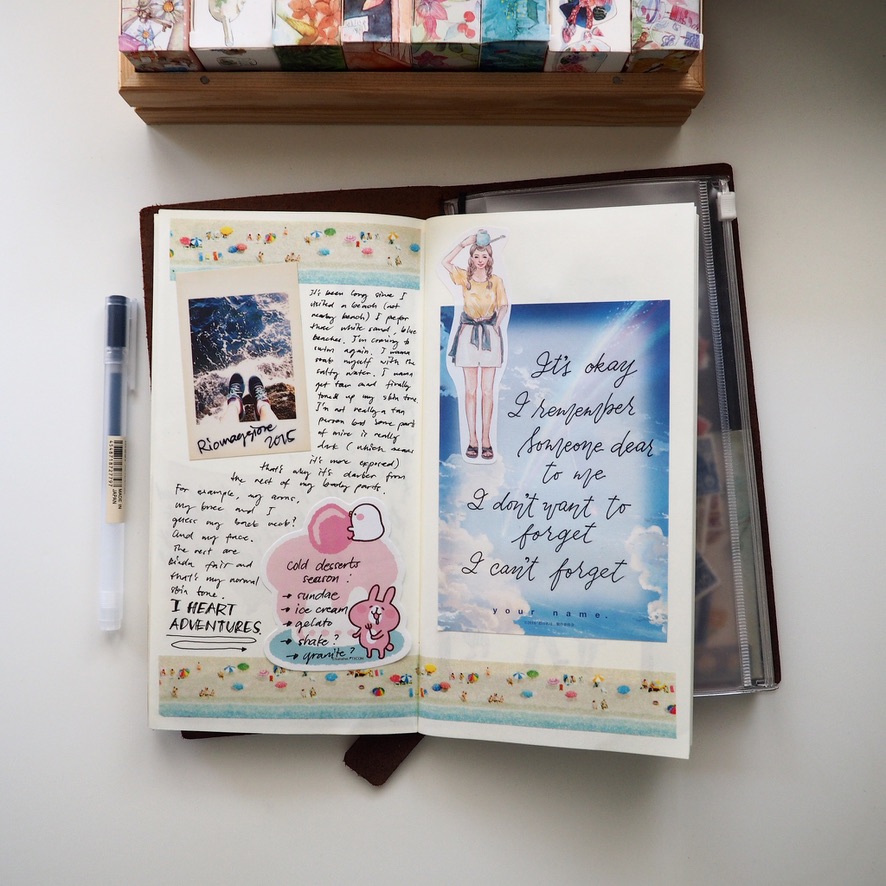 It's been long since I
visited a beach (not
nearby beach) I prefer
those white sand, blue
beaches. I'm craving to
swim again. I wanna
soak myself with the
salty water. I wanna
get tan and finally
toned up my skin tone.
I'm not really a tan
person but some part
of mine is really
dark (which means
it's more exposed)
that's why it's darker from
the rest of my body parts.
For example, my arms,
my knee and I
guess my back neck?
And my face.
The rest are
kinda fair and
that's my normal
skin tone.
I HEART
ADVENTURES.
Riomaggiore
2015
cold desserts
season:
→ sundae
→ ice cream
→ gelato
→ shake?
→ granite?
It's okay
I remember
Someone dear
to me
I don't want to
forget
I can't forget
your name.
MADE IN
JAPAN